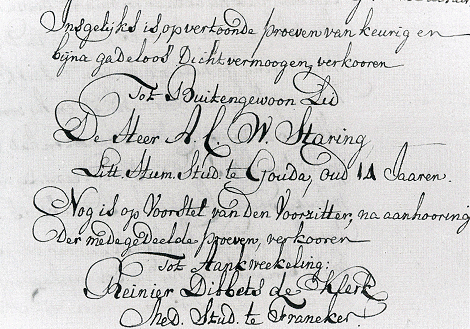 Insgelijks is, op vertoonde proeven van keurig en
bijna gadeloos Dichtvermoogen, verkooren
Tot Buitengewoon Lid
De Heer A. C. W. Staring,
Litt. Hum. Stud. te Gouda, oud 14 Jaaren.
Nog is op Voorstel van den Voorzitter, na aanhooring
der medegedeelde proeven, verkooren
Tot Aankweekeling:
Reinier Dibbets de
Med. Stud. te Franeker.